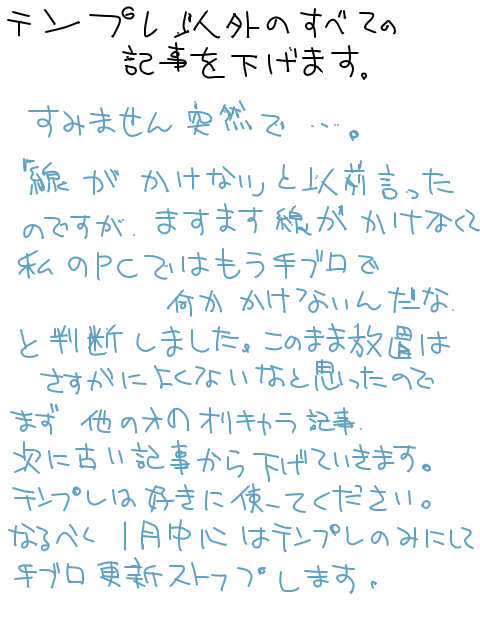 テンプレ以外のすべての
記事を下げます。
すみません突然で…。
「線がかけない」と以前言った
のですが.ますます線がかけなくて
私のPCではもう手ブロで
何かかけないんだな.
と判断しました。このまま放置は
さすがによくないなと思ったので
まず他の方のオリキャラ記事.
次に古い記事から下げていきます。
テンプレは好きに使ってください。
なるべく1月中心はテンプレのみにして
手ブロ更新ストップします.